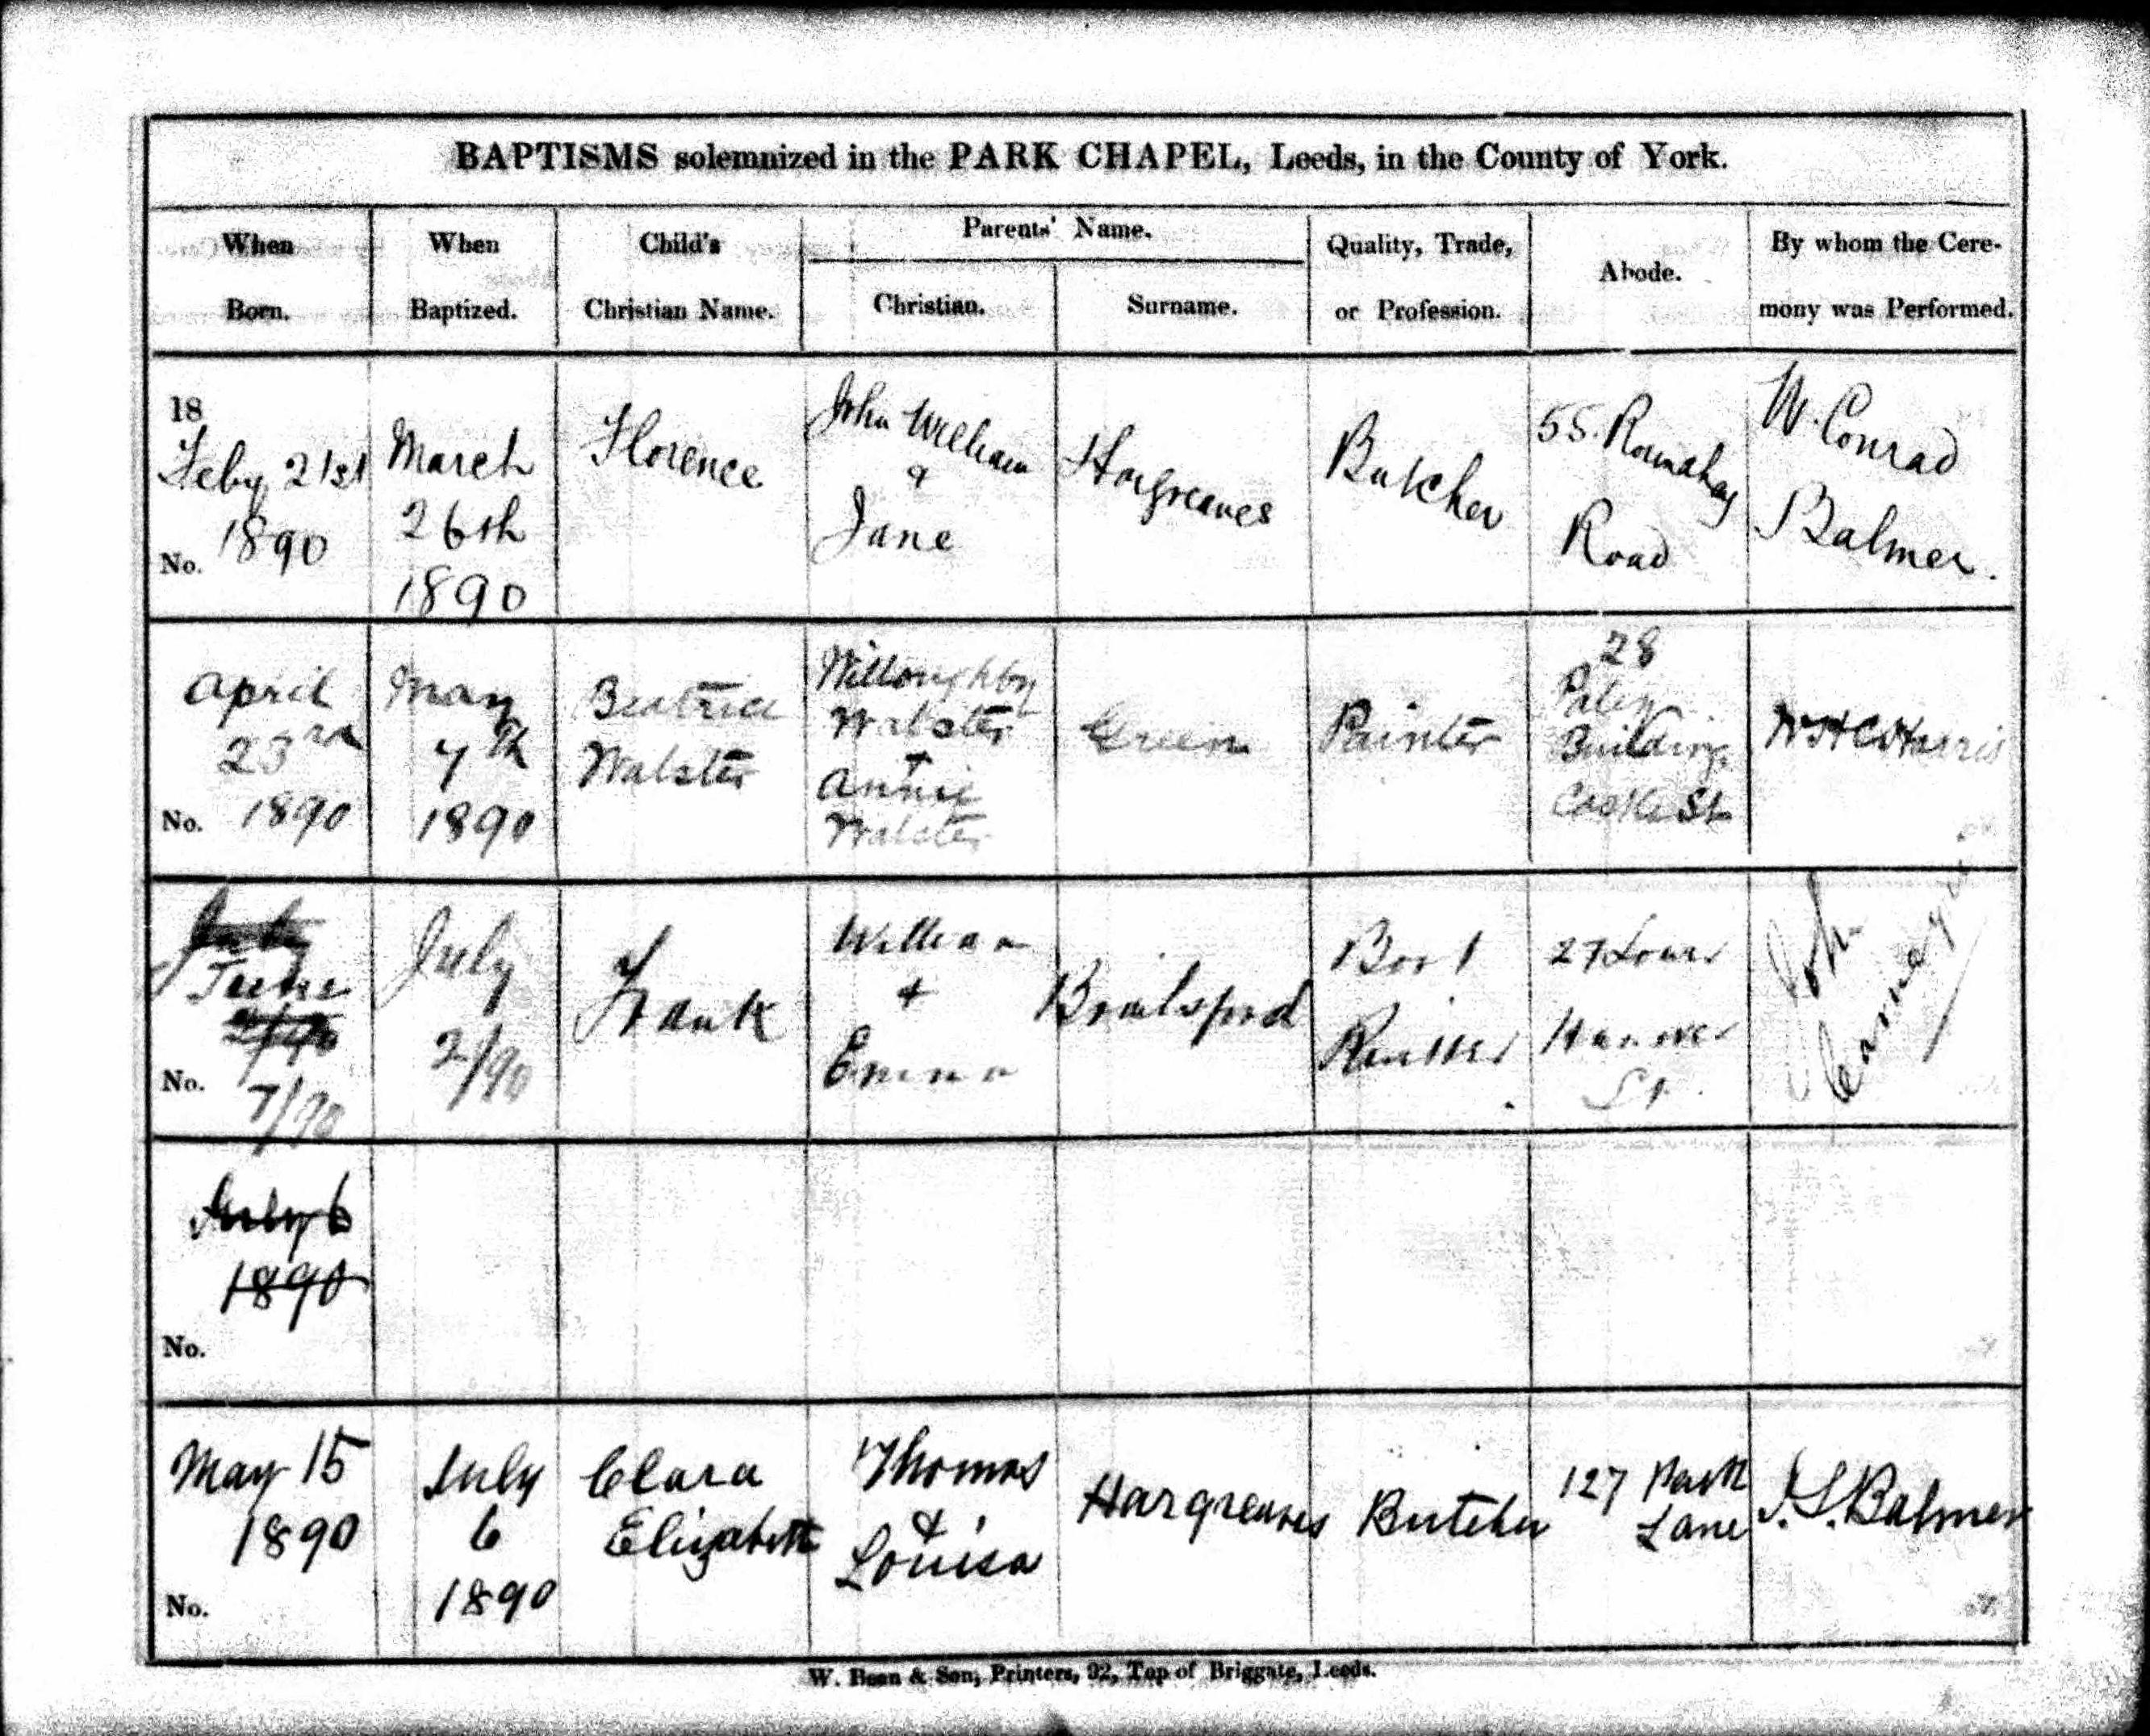 BAPTISMS solemnized in the PARK CHAPEL, Leeds, in the County of York.
When Born.
When Baptized.
Child's Christian Name.
Parents' Name.
Christian.
Surname.
Quality, Trade, or Profession.
Abode.
By whom the Cere-
mony was Performed.
18
Feby 21st
1890
No.
March
26th
1890
Florence
John William
&
Jane
Hargreaves
Butcher
55. Roundhay
Road
W. Conrad
Balmer.
April
23rd
1890
No.
May
7th
1890
Beatrice
Walster
Willoughby
Walster
+
Annie
Walster
Green
Painter
28
Paley
Buildings
Castle St
W H C Harris
July
June
2/90
No.
7/90
July
2/90
Frank
William
+
Emma
Brailsford
Boot
Riveter
27 Lower
Hanover
St.
John
Carnegie
July 6
1890
No.
May 15
1890
No.
July
6
1890
Clara
Elizabeth
Thomas
&
Louisa
Hargreaves
Butcher
127 Park
Lane
J. S. Balmer
W. Bean & Son, Printers, 92, Top of Briggate, Leeds.